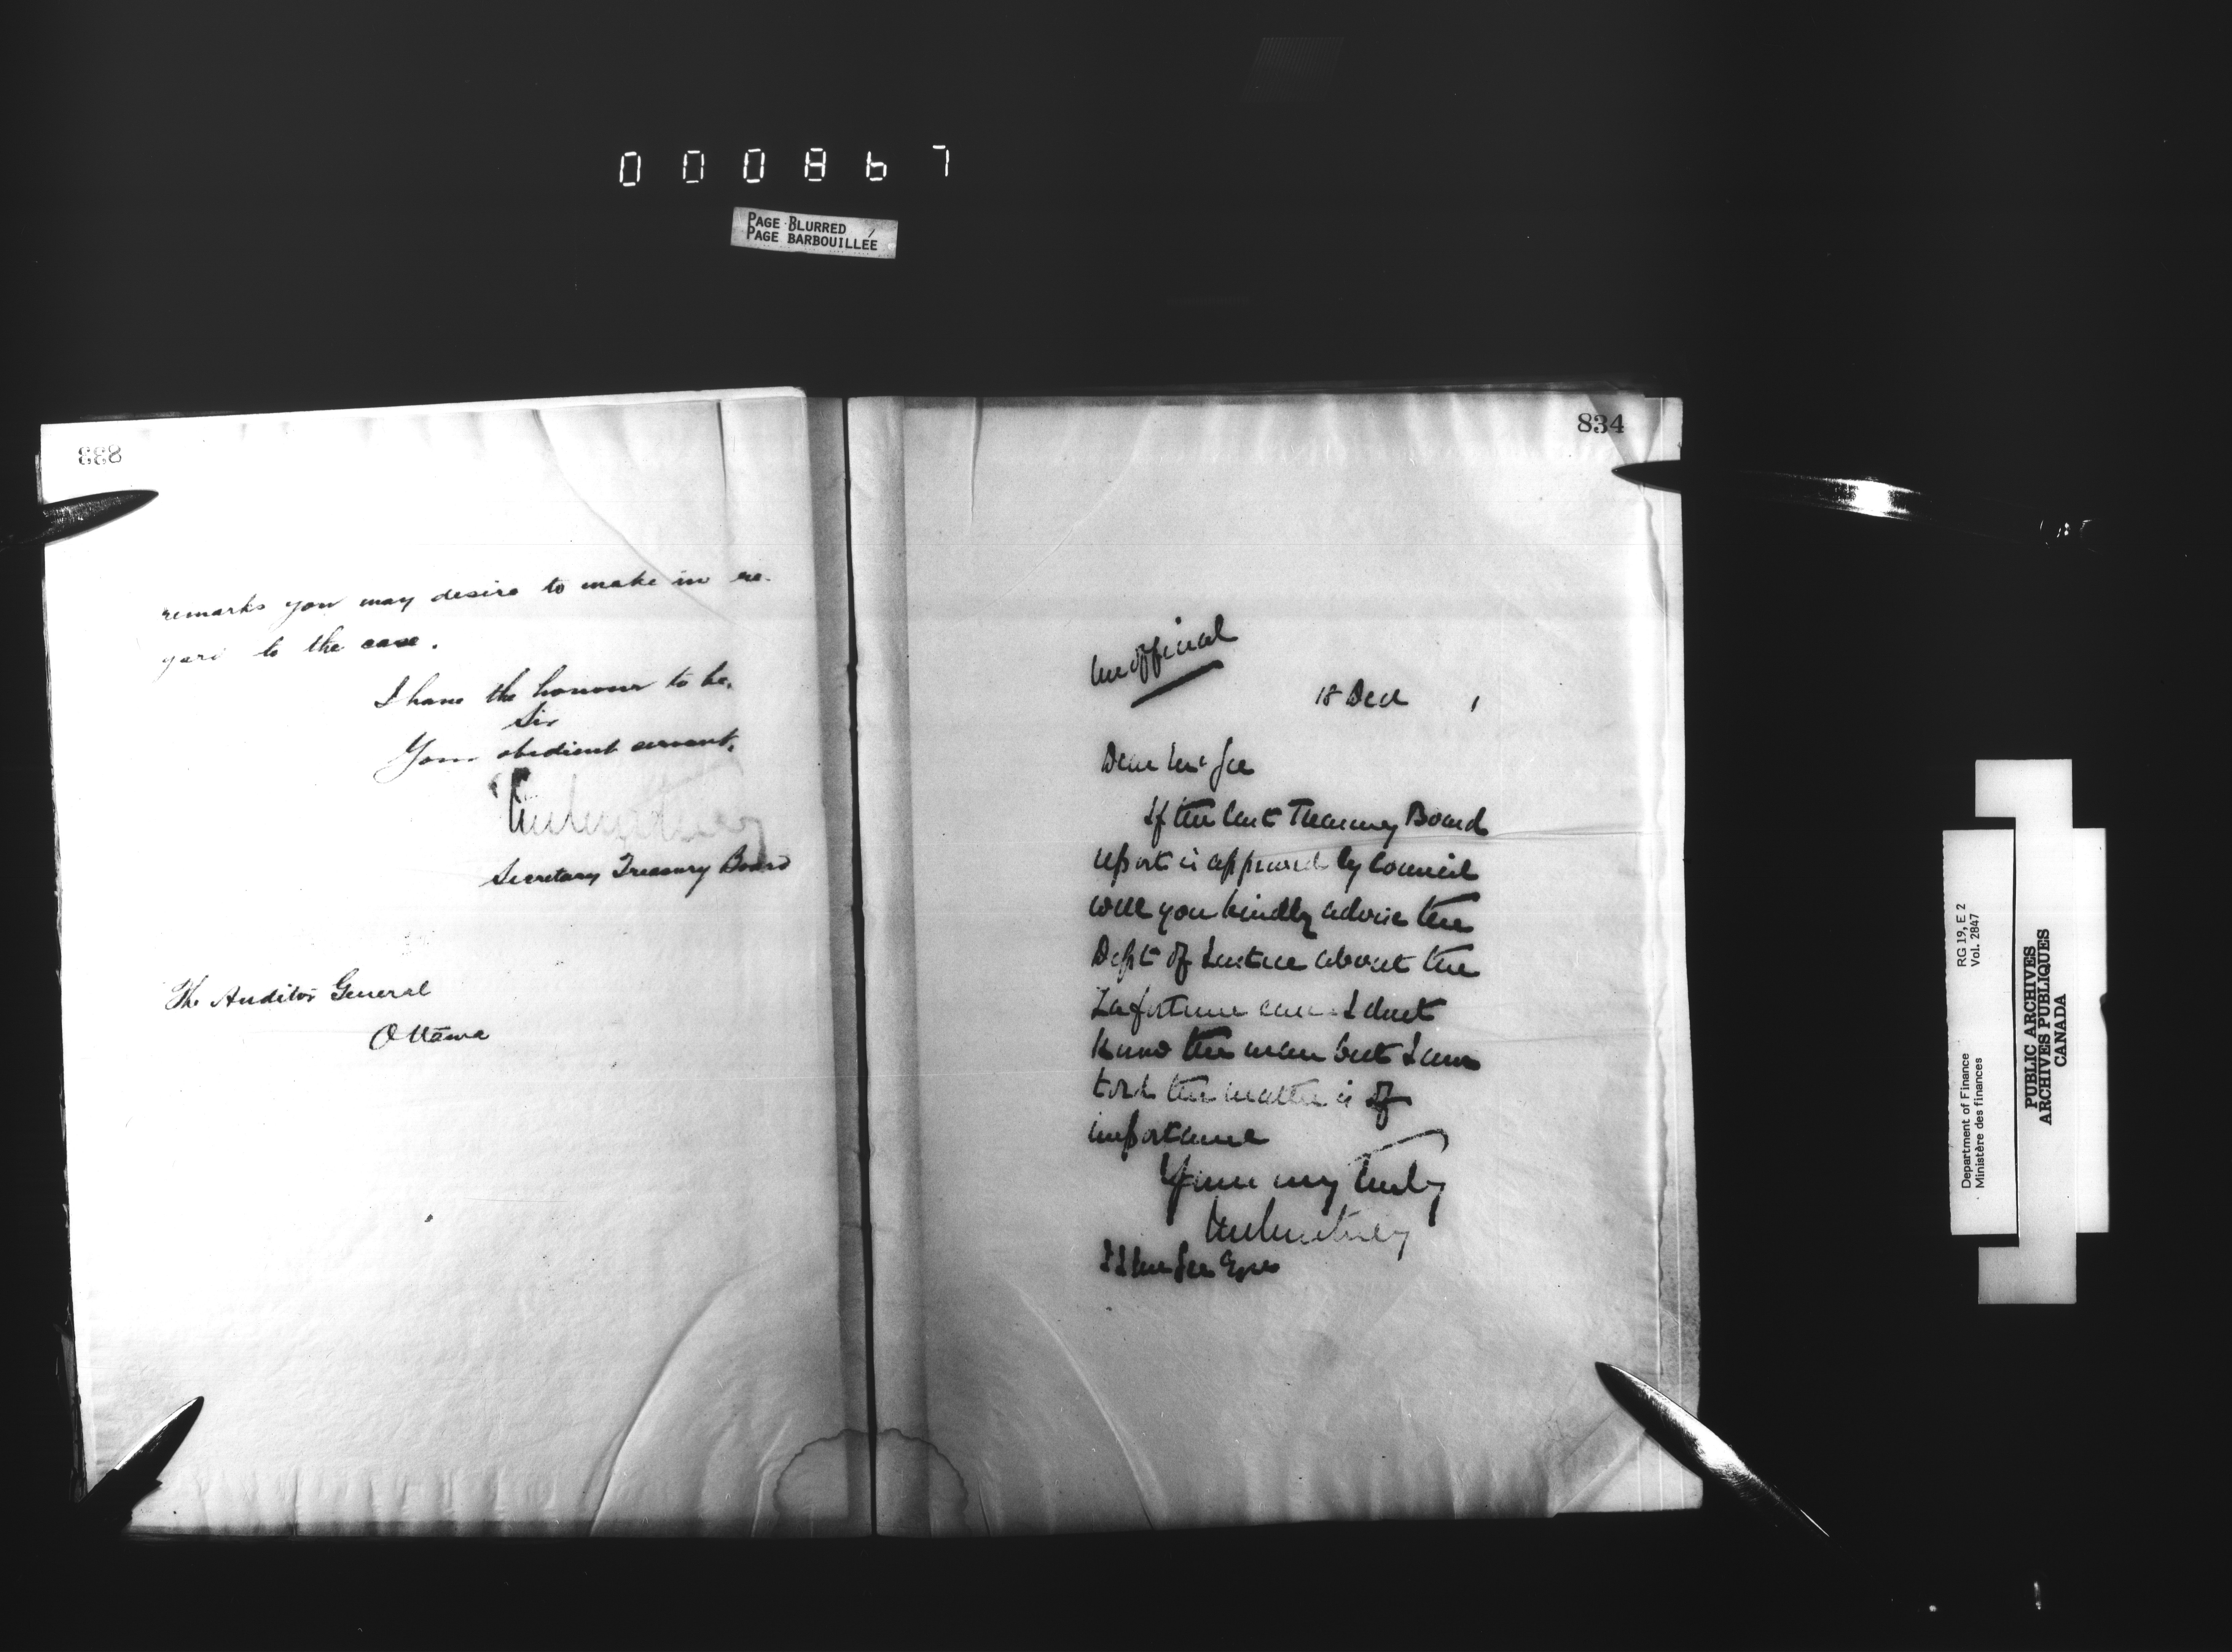 000867
PAGE BLURRED
PAGE BARBOUILLEE
833
remarks you may desire to make in re-
gard to the case.
I have the honour to be,
Sir
Your obedient servant,
Secretary Treasury Board
The Auditor General
Ottawa
834
Unofficial
18 Dec 1
Dear Mr Gee
If the last Treasury Board
report is approved by Council
will you kindly advise the
Dept of Justice about the
Lafortune case I dont
know the man but I am
told the matter is of
importance
Yours very truly
Esqre
RG 19, E 2
Vol. 2847
Department of Finance
Ministère des finances
PUBLIC ARCHIVES
ARCHIVES PUBLIQUES
CANADA